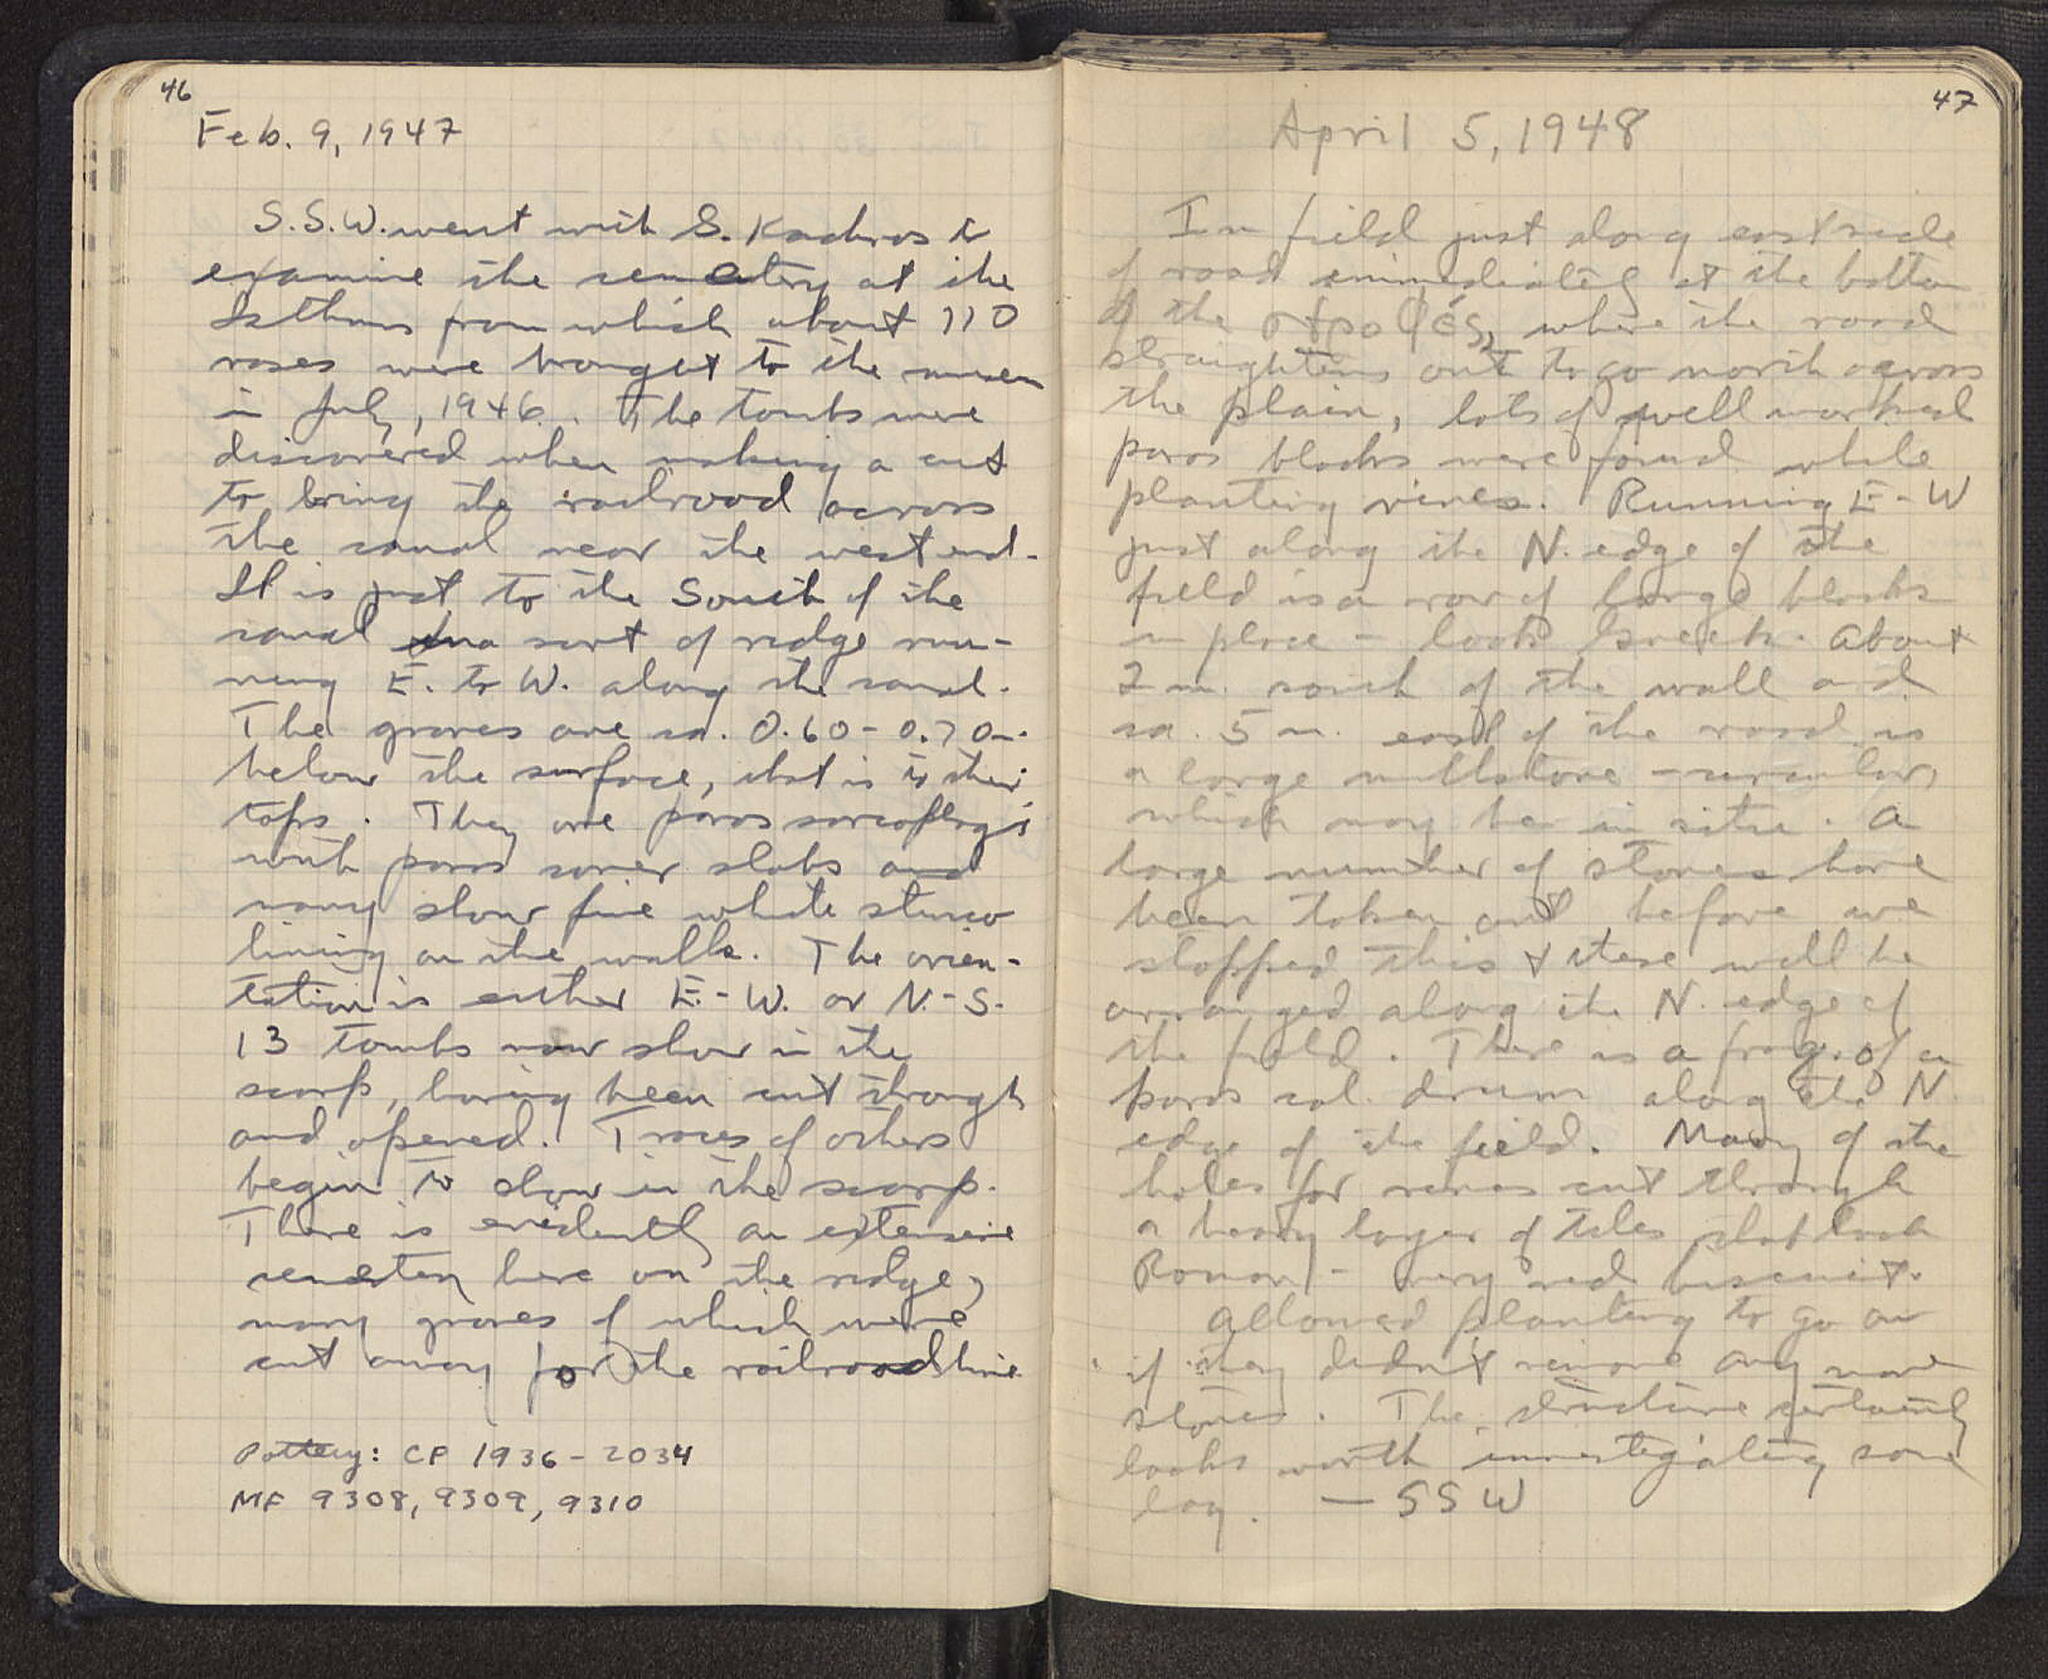 46
Feb. 9, 1947
S.S.W. went with S. Kachros to
examine the cemetery at the
Isthmus from which about 110
vases were brought to the museum
in July, 1946. The tombs were
discovered when making a cut
to bring the railroad across
the canal near the west end.
It is just to the South of the
canal on a sort of ridge run-
ning E. to W. along the canal.
The graves are ca. 0.60 - 0.70 m.
below the surface, that is to their
tops. They are poros sarcophagi
with poros cover slabs and
many show fine white stucco
lining on the walls. The orien-
tation is either E.-W. or N.-S.
13 tombs now show in the
scarp, having been cut through
and opened. Traces of others
begin to show in the scarp.
There is evidently an extensive
cemetery here on the ridge,
many graves of which were
cut away for the railroad line.
Pottery: CP 1936 - 2034
MF 9308, 9309, 9310
47
April 5, 1948
In field just along east side
of road immediately at the bottom
of the στροφές, where the road
straightens out to go north across
the plain, lots of well worked
poros blocks were found while
planting vines. Running E - W
just along the N. edge of the
field is a row of large blocks
in place - look Greek. About
2 m. south of the wall and
ca. 5 m. east of the road is
a large millstone - circular,
which may be in situ. A
large number of stones have
been taken out before we
stopped this & these will be
arranged along the N. edge of
the field. There is a frag. of a
poros col. drum along the N.
edge of the field. Many of the
holes for vines cut through
a heavy layer of tiles that look
Roman - very red biscuit.
Allowed planting to go on
if they didn't remove any more
stones. The structure certainly
looks worth investigating some
day. - SSW